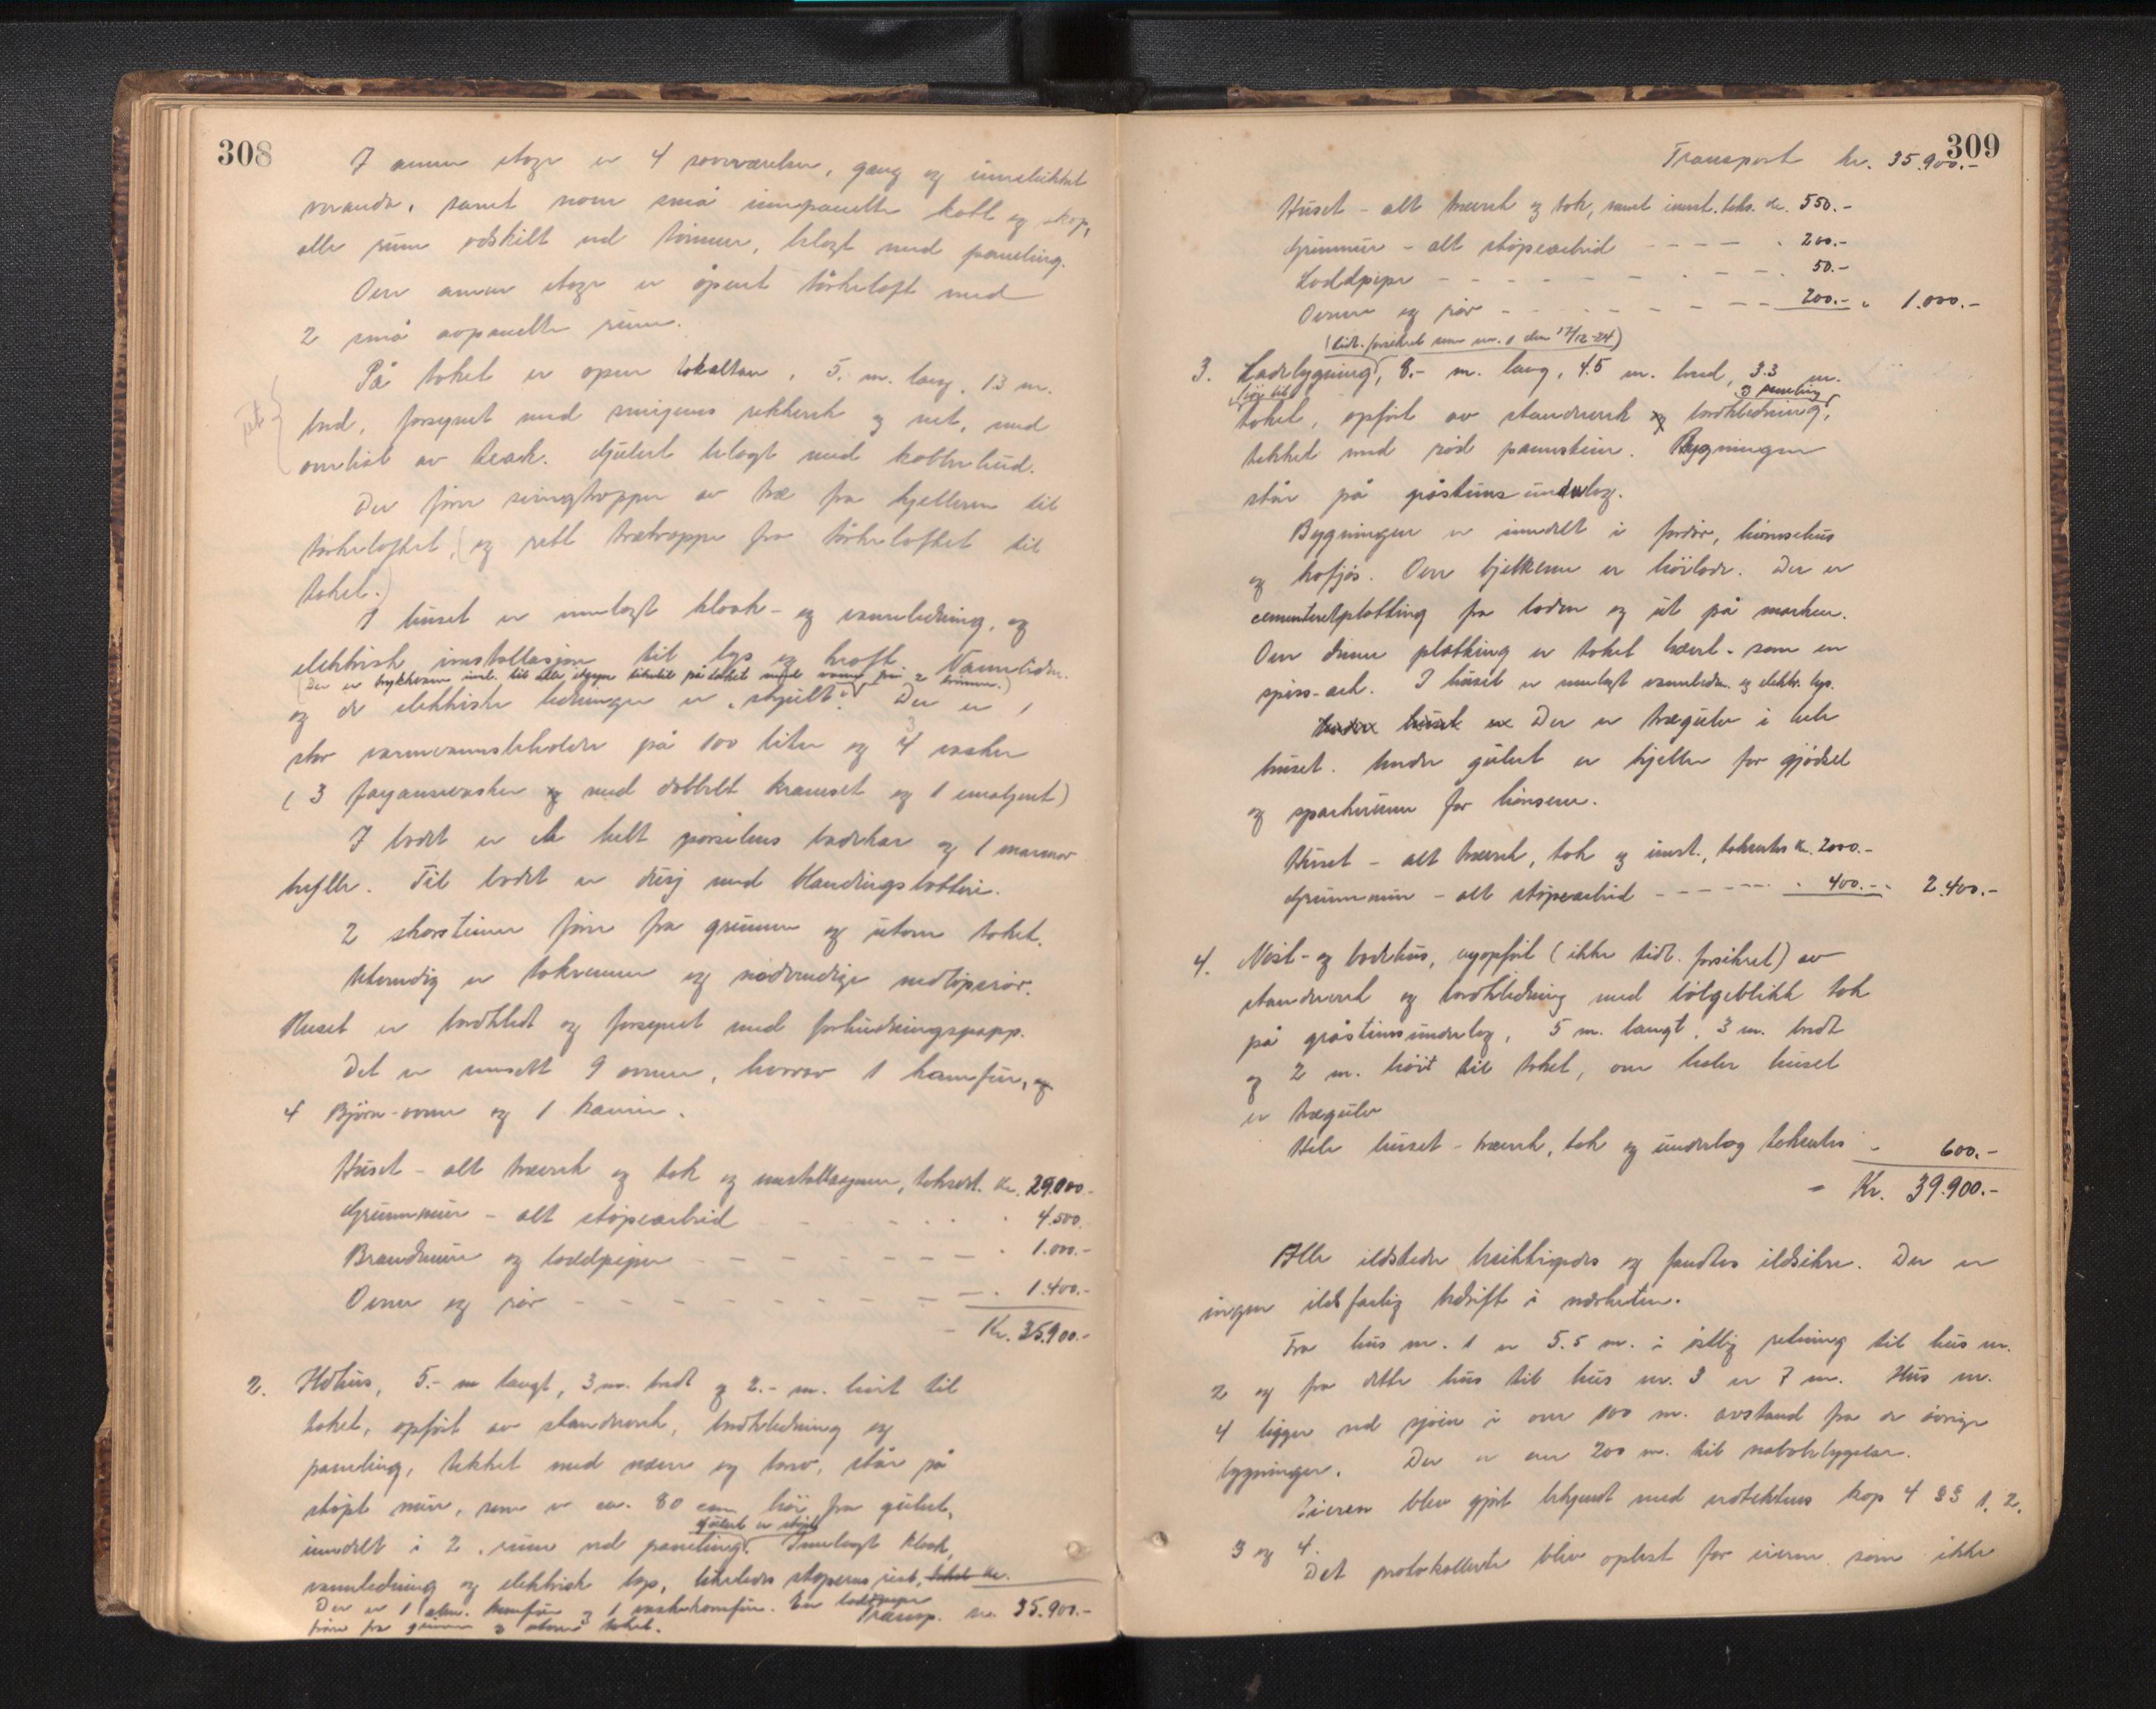 308
I annen etage er 4 soveværelser, gang og innelukket
veranda, samt noen små innpanelte kott og skap,
alle rum adskilt ved tømmer, belagt med paneling.
Over annen etage er åpent tørkeloft med
2 små avpanelte rum.
På taket er open takaltan, 5. m. lang, 1.3 m.
bred, forsynet med smijerns rekkverk og net, med
overlist av teack. Gulvet belagt med kobberhud.
Der fører svingtrapper av træ fra kjelleren til
tørkeloftet, (og rett trætrappe fra tørkeloftet til
taket.)
I huset er innlagt kloak- og vannledning, og
elektrisk installasjon til lys og kraft. Vannledn.
og de elektriske ledninger er "skjult". Der er 1
stor varmevannsbeholder på 100 liter og 4 vasker
(3 fayansevasker og med dobbelt kranset og 1 emaljert)
I badet er et helt porselens badekar og 1 marmor
hylle. Til badet er dusj med blandingsbatteri.
2 skorstener fører fra grunnen og utover taket.
Utvendig er takrenner og nødvendige nedløpsrør.
Huset er bordkledt og forsynet med forhudningspapp.
Det er innsatt 9 ovner, hvorav 1 komfur, og
4 Bjørn-ovner og 1 kamin.
Huset - alt træverk og tak og installasjoner, takser. Kr. 29.000.-
Grunnmur - alt støpearbeid - - - - 4.500.
Brandmur og loddpiper - - - - - - - 1.000.-
Ovner og rør - - - - - - - - - 1.400.-
- Kr. 35.900.-
2. Ildhus, 5.- m langt, 3 m. bredt og 2.- m. høit til
taket, opført av standverk, bordkledning og
paneling, tekket med never og torv, står på
støpt mur, som er ca. 80 cm høi fra gulvet,
gulvet er støpt
inndelt i 2 rum ved paneling. Innlagt kloak,
vannledning og elektrisk lys, likeledes støperns rist,
Der er 1 alm. komfur og 1 vaskekomfur. En loddpipe
fører fra grunnen og utover taket.
Transp. kr. 35.900.-
309
Transport kr. 35.900.-
Huset - alt træverk og tak, samt innst. taks. kr. 550.-
Grunnmur - alt støpearbeid - - - - 200.-
Loddpipe - - - - - - - - 50.-
Ovner og rør - - - - - - - 200.- " 1.000.-
(tidl. forsikret som nr. 1 den 17/12-24)
3. Ladebygning, 8.- m. lang, 4.5 m. bred, 3.3 m.
høi til og paneling
taket, opført av standverk og bordkledning,
tekket med rød pannestein. Bygningen
står på gråstens underlag.
Bygningen er inndelt i forrør, hønsehus
og kofjøs. Over bjelkene er høilade. Der er
cementeretplatting fra laden og ut på marken.
Over denne platting er taket hævet - som en
spiss-ark. I huset er innlagt vannledn. og elektr. lys.
Under huset er Der er trægulv i hele
huset. Under gulvet er kjeller for gjødsel
og sparkerum for hønsene.
Huset - alt træverk, tak og innst., takseres Kr. 2000.-
Grunnmur - alt støpearbeid - - - - - - 400.- " 2.400.-
4. Nøst- og badehus, nyopført (ikke tidl. forsikret) av
standverk og bordkledning med bølgeblikk tak
på gråstens underlag, 5 m. langt, 3 m. bredt
og 2 m. høit til taket, over hele huset
er trægulv
Hele huset - træverk, tak og underlag takseres - 600.-
= Kr. 39.900.-
Alle ildsteder besiktigedes og fandtes ildsikre. Der er
ingen ildsfarlig bedrift i nærheten.
Fra hus nr. 1 er 5.5 m. i østlig retning til hus nr.
2 og fra dette hus til hus nr. 3 er 7 m. Hus nr.
4 ligger ved sjøen i over 100 m. avstand fra de øvrige
bygninger. Der er over 200 m. til nabobebyggelse.
Eieren blev gjort bekjendt med vedtektens kap 4 §§ 1, 2,
3 og 4.
Det protokollerte blev oplest for eieren som ikke